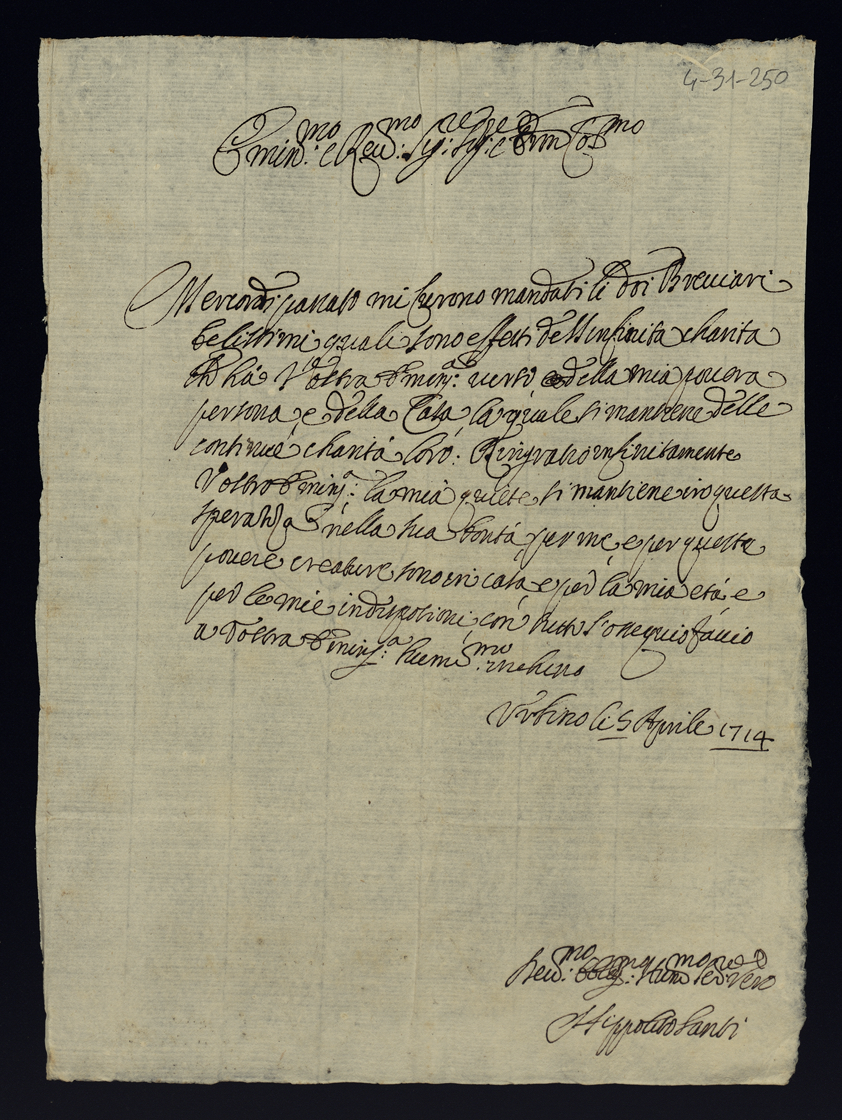 4-31-250
Emin.mo e Rev.mo Sig:re Sig:re e Pron Col.mo
Mercordi passato mi furono mandati li doi Breviari
belissimi quali sono effetti dell'infinita charita
ch hà Vostra Emin.a verso della mia povera
persona, e della Casa la quale si mantiene delle
continue charità loro: Ringratio infinitamente
Vostra Emin.a: la mia quiete si mantiene in questa
speranza nella sua bontà per me, e per queste
povere creature sono in casa e per la mia età e
per le mie indispositioni con tutto l'ossequio faccio
a Vostra Emin.a humi.mo inchino
Urbino li 5 Aprile 1714
Dev.mo Hum.mo Ser.re Vero
Hippolito Santi